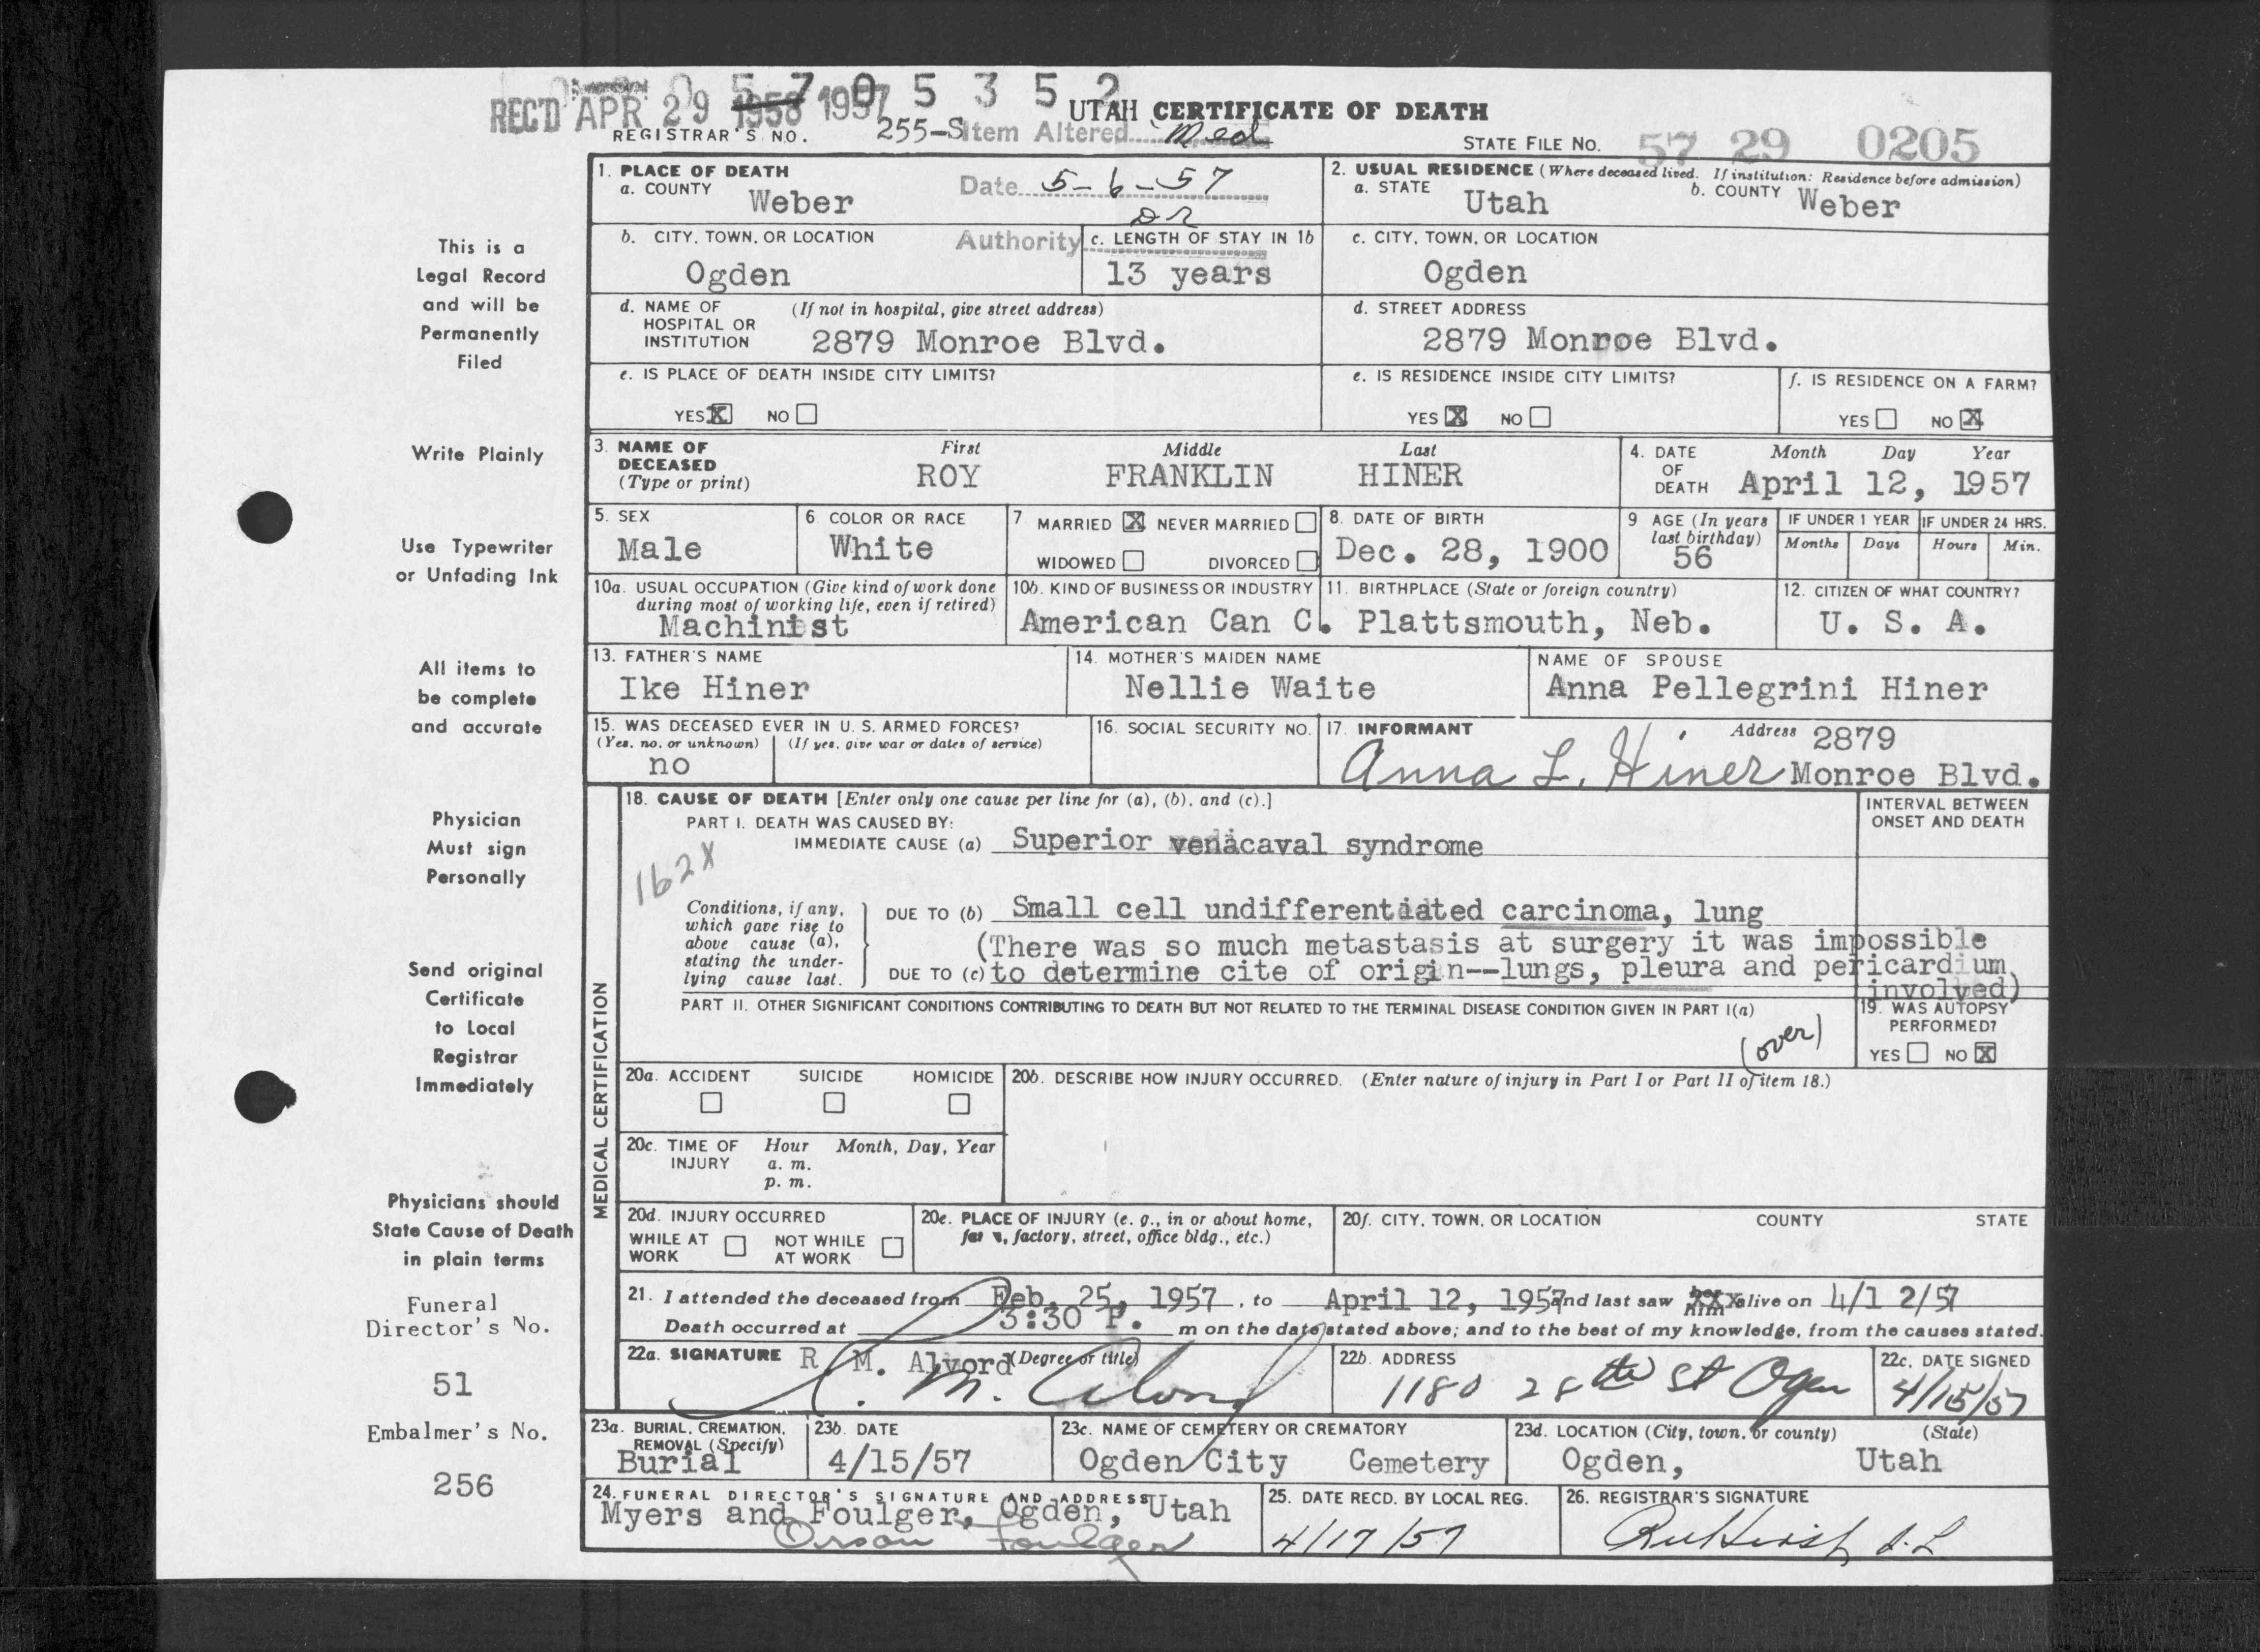 REC'D APR 29 1958 1957
0 5 7 0 5 3 5 2
UTAH CERTIFICATE OF DEATH
REGISTRAR'S NO. 255-S
Item Altered Med
STATE FILE NO. 57 29 0205
1. PLACE OF DEATH
a. COUNTY Weber
Date 5-6-57
DR
Authority
2. USUAL RESIDENCE (Where deceased lived. If institution: Residence before admission)
a. STATE Utah b. COUNTY Weber
b. CITY, TOWN, OR LOCATION
Ogden
c. LENGTH OF STAY IN 1b
13 years
c. CITY, TOWN, OR LOCATION
Ogden
d. NAME OF (If not in hospital, give street address)
HOSPITAL OR
INSTITUTION 2879 Monroe Blvd.
d. STREET ADDRESS
2879 Monroe Blvd.
e. IS PLACE OF DEATH INSIDE CITY LIMITS?
YES X NO
e. IS RESIDENCE INSIDE CITY LIMITS?
YES X NO
f. IS RESIDENCE ON A FARM?
YES NO X
3. NAME OF DECEASED (Type or print)
First Middle Last
ROY FRANKLIN HINER
4. DATE OF DEATH
Month Day Year
April 12, 1957
5. SEX
Male
6 COLOR OR RACE
White
7 MARRIED X NEVER MARRIED
WIDOWED DIVORCED
8. DATE OF BIRTH
Dec. 28, 1900
9 AGE (In years last birthday)
56
IF UNDER 1 YEAR
Months Days
IF UNDER 24 HRS.
Hours Min.
10a. USUAL OCCUPATION (Give kind of work done
during most of working life, even if retired)
Machinist
10b. KIND OF BUSINESS OR INDUSTRY
American Can C.
11. BIRTHPLACE (State or foreign country)
Plattsmouth, Neb.
12. CITIZEN OF WHAT COUNTRY?
U. S. A.
13. FATHER'S NAME
Ike Hiner
14. MOTHER'S MAIDEN NAME
Nellie Waite
NAME OF SPOUSE
Anna Pellegrini Hiner
15. WAS DECEASED EVER IN U. S. ARMED FORCES?
(Yes, no, or unknown) (If yes, give war or dates of service)
no
16. SOCIAL SECURITY NO.
17. INFORMANT Address 2879
Anna L. Hiner Monroe Blvd.
18. CAUSE OF DEATH [Enter only one cause per line for (a), (b), and (c).]
INTERVAL BETWEEN
ONSET AND DEATH
PART I. DEATH WAS CAUSED BY:
IMMEDIATE CAUSE (a) Superior venacaval syndrome
162X
Conditions, if any,
which gave rise to
above cause (a),
stating the under-
lying cause last.
DUE TO (b) Small cell undifferentiated carcinoma, lung
(There was so much metastasis at surgery it was impossible
DUE TO (c) to determine cite of origin--lungs, pleura and pericardium
involved)
PART II. OTHER SIGNIFICANT CONDITIONS CONTRIBUTING TO DEATH BUT NOT RELATED TO THE TERMINAL DISEASE CONDITION GIVEN IN PART I(a)
(over)
19. WAS AUTOPSY
PERFORMED?
YES NO X
MEDICAL CERTIFICATION
20a. ACCIDENT SUICIDE HOMICIDE
20b. DESCRIBE HOW INJURY OCCURRED. (Enter nature of injury in Part I or Part II of item 18.)
20c. TIME OF INJURY
Hour Month, Day, Year
a. m.
p. m.
20d. INJURY OCCURRED
WHILE AT WORK NOT WHILE AT WORK
20e. PLACE OF INJURY (e. g., in or about home,
farm, factory, street, office bldg., etc.)
20f. CITY, TOWN, OR LOCATION COUNTY STATE
21. I attended the deceased from Feb. 25, 1957, to April 12, 1957 and last saw her him alive on 4/1 2/57
Death occurred at 3:30 P. m on the date stated above; and to the best of my knowledge, from the causes stated.
22a. SIGNATURE R. M. Alvord (Degree or title)
R. M. Alvord
22b. ADDRESS
1180 28th St Ogen
22c. DATE SIGNED
4/15/57
23a. BURIAL, CREMATION,
REMOVAL (Specify)
Burial
23b. DATE
4/15/57
23c. NAME OF CEMETERY OR CREMATORY
Ogden City Cemetery
23d. LOCATION (City, town, or county) (State)
Ogden, Utah
24. FUNERAL DIRECTOR'S SIGNATURE AND ADDRESS
Myers and Foulger, Ogden, Utah
Orson Foulger
25. DATE RECD. BY LOCAL REG.
4/17/57
26. REGISTRAR'S SIGNATURE
This is a
Legal Record
and will be
Permanently
Filed
Write Plainly
Use Typewriter
or Unfading Ink
All items to
be complete
and accurate
Physician
Must sign
Personally
Send original
Certificate
to Local
Registrar
Immediately
Physicians should
State Cause of Death
in plain terms
Funeral
Director's No.
51
Embalmer's No.
256